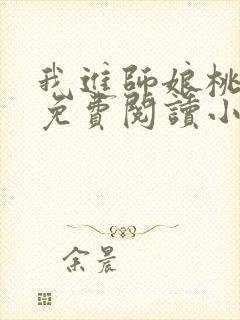 我進師娘桃
免費閱讀小
余晨